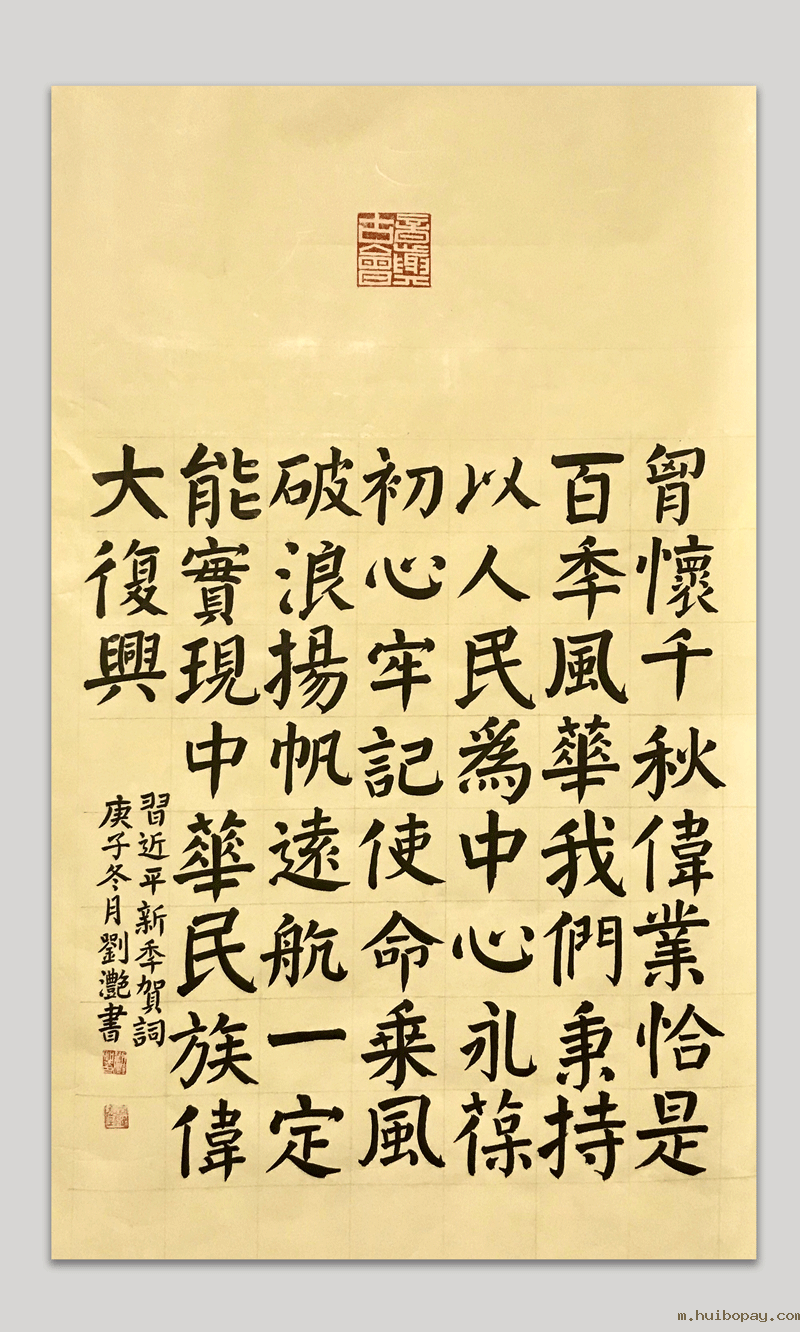 胷懷千秋偉業恰是
百秊風華我們秉持
以人民為中心永葆
初心牢記使命乗風
破浪揚帆遠航一定
能實現中華民族偉
大復興
習近平新秊賀詞
庚子冬月劉灧書
m.huibopay.com